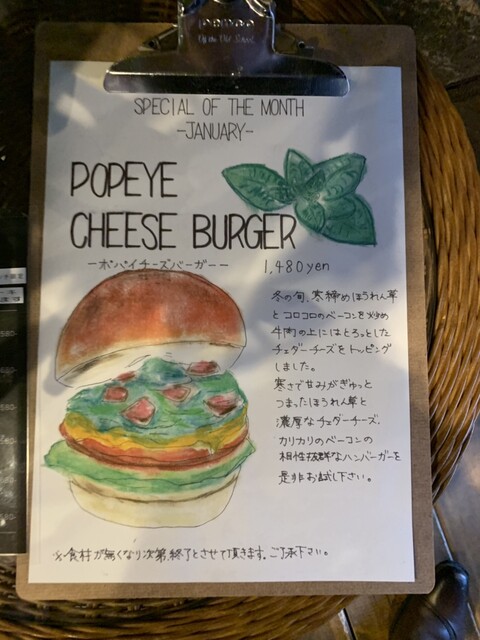 SPECIAL OF THE MONTH
-JANUARY-
POPEYE
CHEESE BURGER
-ポパイチーズバーガー--
1,480yen
冬の旬、寒締めほうれん草
とコロコロのベーコンを炒め
牛肉の上にはとろっとした
チェダーチーズをトッピング
しました。
寒さで甘みがぎゅっと
つまったほうれん草と
濃厚なチェダーチーズ、
カリカリのベーコンの
相性抜群なハンバーガーを
是非お試し下さい。
※食材が無くなり次第、終了とさせて頂きます。ご了承下さい。